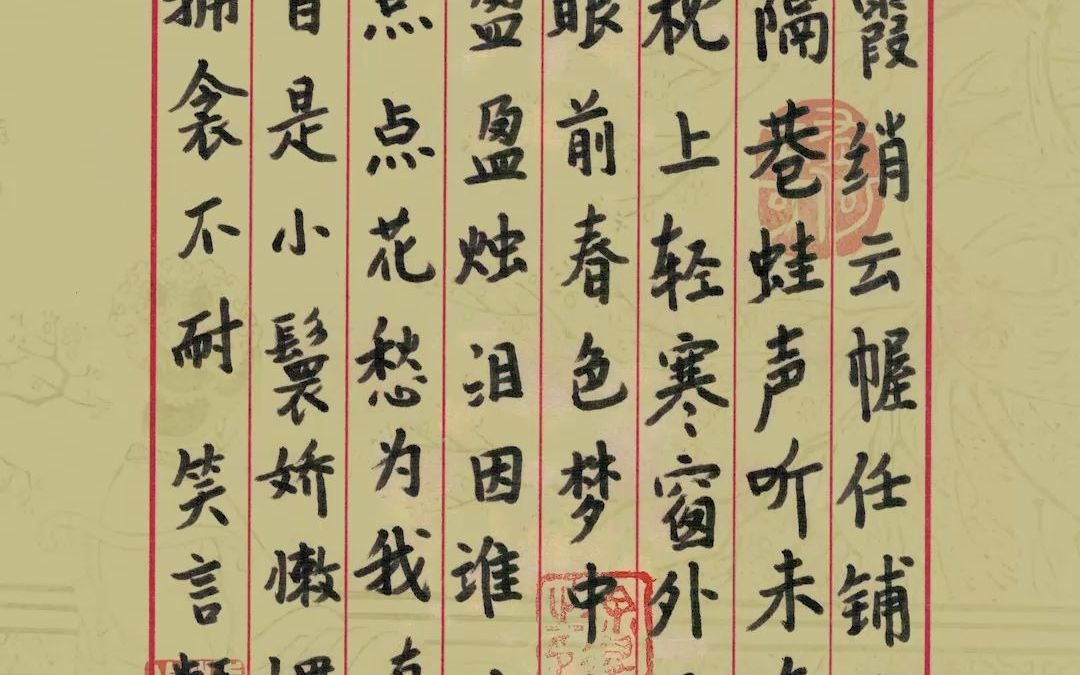 霞绡云幄任铺
隔巷蛙声听未
枕上轻寒窗外
眼前春色梦中
盈盈烛泪因谁
点点花愁为我
自是小鬟娇懒
拥衾不耐笑言